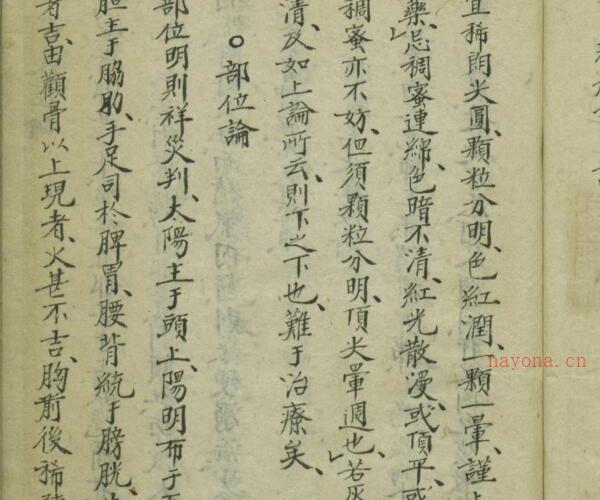 宜稀朗尖圓、顆粒分明、色紅潤、一顆一暈、謹
藥、忌稠蜜連綿、色暗不清、紅光散漫、或頂平、或
稠蜜亦不妨、但須顆粒分明、頂尖暈週也、若灰
清、及如上論所云、則下之下也、難于治療矣、
○部位論
部位明則祥災判、太陽主于頭上、陽明布于
胆主于脇肋、手足司於脾胃、腰背統于膀胱、
者吉、由顴骨以上現者、火甚不吉、胸前後稀
nayona.cn